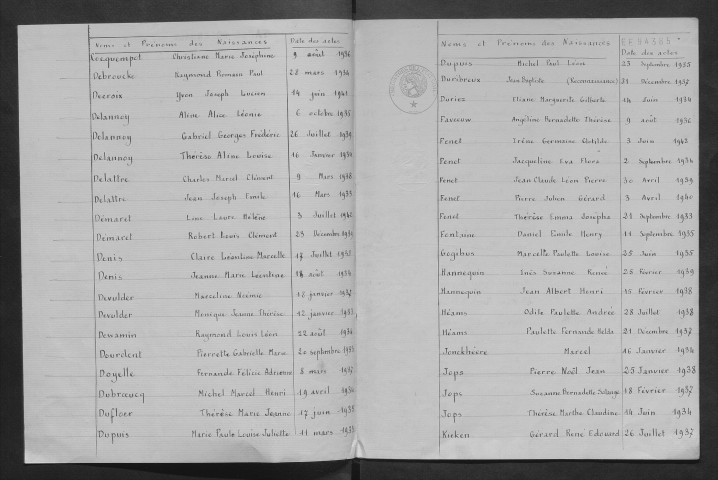 Noms et Prénoms des Naissances Date des actes
Cocquempot Christiane Marie Joséphine 9 août 1936
Debroucke Raymond Romain Paul 28 mars 1934
Decroix Yvon Joseph Lucien 14 juin 1941
Delannoy Aline Alice Léonie 6 octobre 1935
Delannoy Gabriel Georges Frédéric 26 Juillet 1939
Delannoy Thérèse Aline Louise 16 Janvier
Delattre Charles Marcel Clément 9 Mars 1938
Delattre Jean Joseph Emile 16 Mars 1933
Démaret Line Laure Hélène 3 Juillet 1942
Démaret Robert Louis Clément 23 Décembre
Denis Claire Léontine Marcelle 17 Juillet
Denis Jeanne Marie Léontine 18 août
Devulder Marceline Noémie 12 janvier 1937
Devulder Monique Jeanne Thérèse 12 janvier
Dewamin Raymond Louis Léon 22 août 1934
Dourdent Pierrette Gabrielle Marie 20 septembre
Doyelle Fernande Félicie Adrienne 8 mars
Dubrœucq Michel Marcel Henri 19 avril
Dufloer Thérèse Marie Jeanne 17 juin 1938
Dupuis Marie Paule Louise Juliette 11 mars
Noms et Prénoms des Naissances Date des actes
Dupuis Michel Paul Léon 23 Septembre 1935
Duribreux Jean Baptiste (Reconnaissance) 31 Décembre 1937
Duriez Eliane Marguerite Gilberte 14 Juin 1934
Favreuw Angéline Bernadette Thérèse 9 août 1936
Fenet Irène Germaine Clotilde 3 Juin 1942
Fenet Jacqueline Eva Flore 2 Septembre 1934
Fenet Jean Claude Léon Pierre 30 Avril 1939
Fenet Pierre Julien Gérard 3 Avril 1940
Fenet Thérèse Emma Josèphe 21 Septembre 1933
Fontaine Daniel Emile Henry 11 Septembre 1935
Gogibus Marcelle Paulette Louise 25 Juin 1935
Hannequin Inès Suzanne Renée 28 Février 1939
Hannequin Jean Albert Henri 15 Février 1938
Héams Odile Paulette Andrée 28 Juillet 1938
Héams Paulette Fernande Nelda 21 Décembre 1937
Jonckheere Marcel 16 Janvier 1934
Jops Pierre Noël Jean 25 Janvier 1938
Jops Suzanne Bernadette Solange 18 Février 1937
Jops Thérèse Marthe Claudine 14 Juin 1934
Kieken Gérard René Edouard 26 Juillet 1937